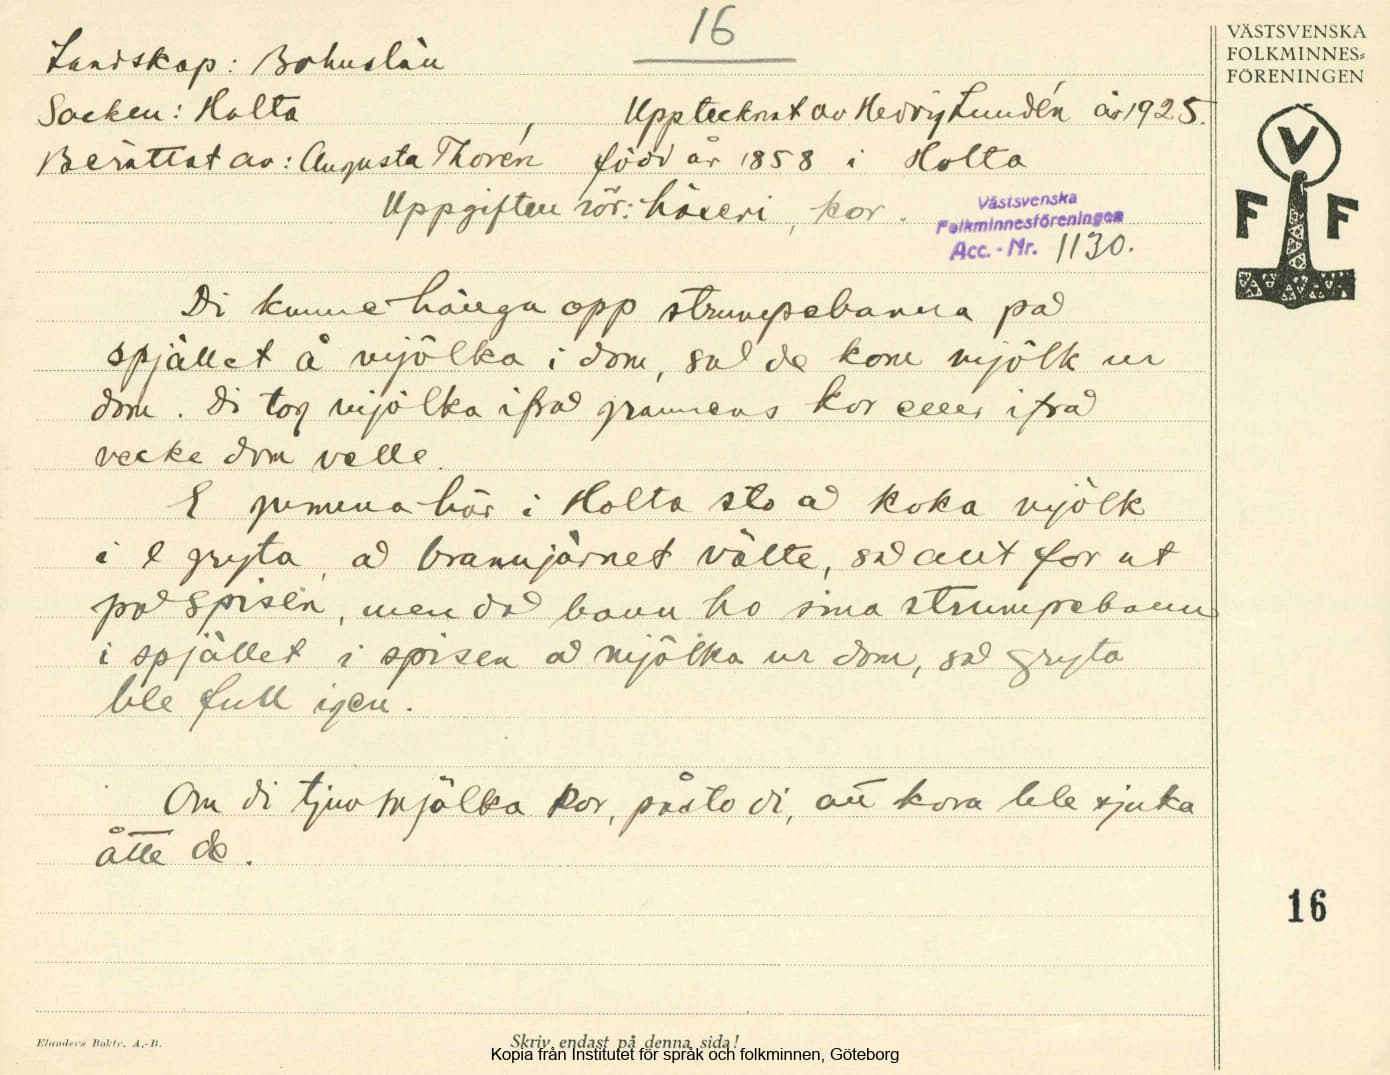 16
VÄSTSVENSKA
FOLKMINNES=
FÖRENINGEN
Landskap: Bohuslän
Socken: Holta, Upptecknat av Hedvig Lundén år 1925.
Berättat av: Augusta Thorén född år 1858 i Holta
Uppgiften rör: häxeri, kor.
Västsvenska
Folkminnesföreningen
Acc.-Nr. 1130.
V
F F
Di kunne hänga opp strumpebanna på
spjället å mjölka i dom, så de kom mjölk ur
dom. Di tog mjölka ifrå grannens kor eller ifrå
vecke dom velle.
E gumma här i Holta sto å koka mjölk
i e gryta, å brannjärnet välte, så allt for ut
på spisen, men då bann ho sina strumpebann
i spjället i spisen å mjölka ur dom, så gryta
ble full igen.
Om di tjuvmjölka kor, påsto di, att kora ble sjuka
åtte de.
16
Elanders Boktr. A.-B.
Skriv endast på denna sida!
Kopia från Institutet för språk och folkminnen, Göteborg